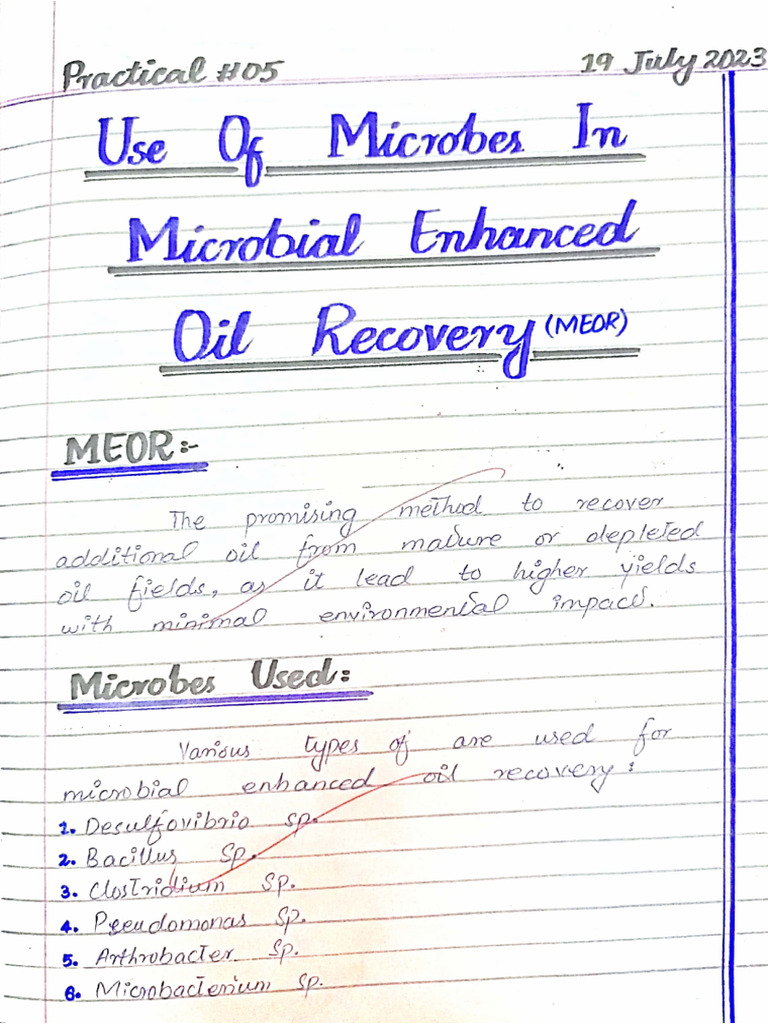 Practical #05
19 July 2023
Use Of Microbes In
Microbial Enhanced
Oil Recovery (MEOR)
MEOR:-
The promising method to recover
additional oil from mature or depleted
oil fields, as it lead to higher yields
with minimal environmental impact.
Microbes Used:
Various types of are used for
microbial enhanced oil recovery:
1. Desulfovibrio sp.
2. Bacillus sp.
3. Clostridium sp.
4. Pseudomonas sp.
5. Arthrobacter sp.
6. Microbacterium sp.